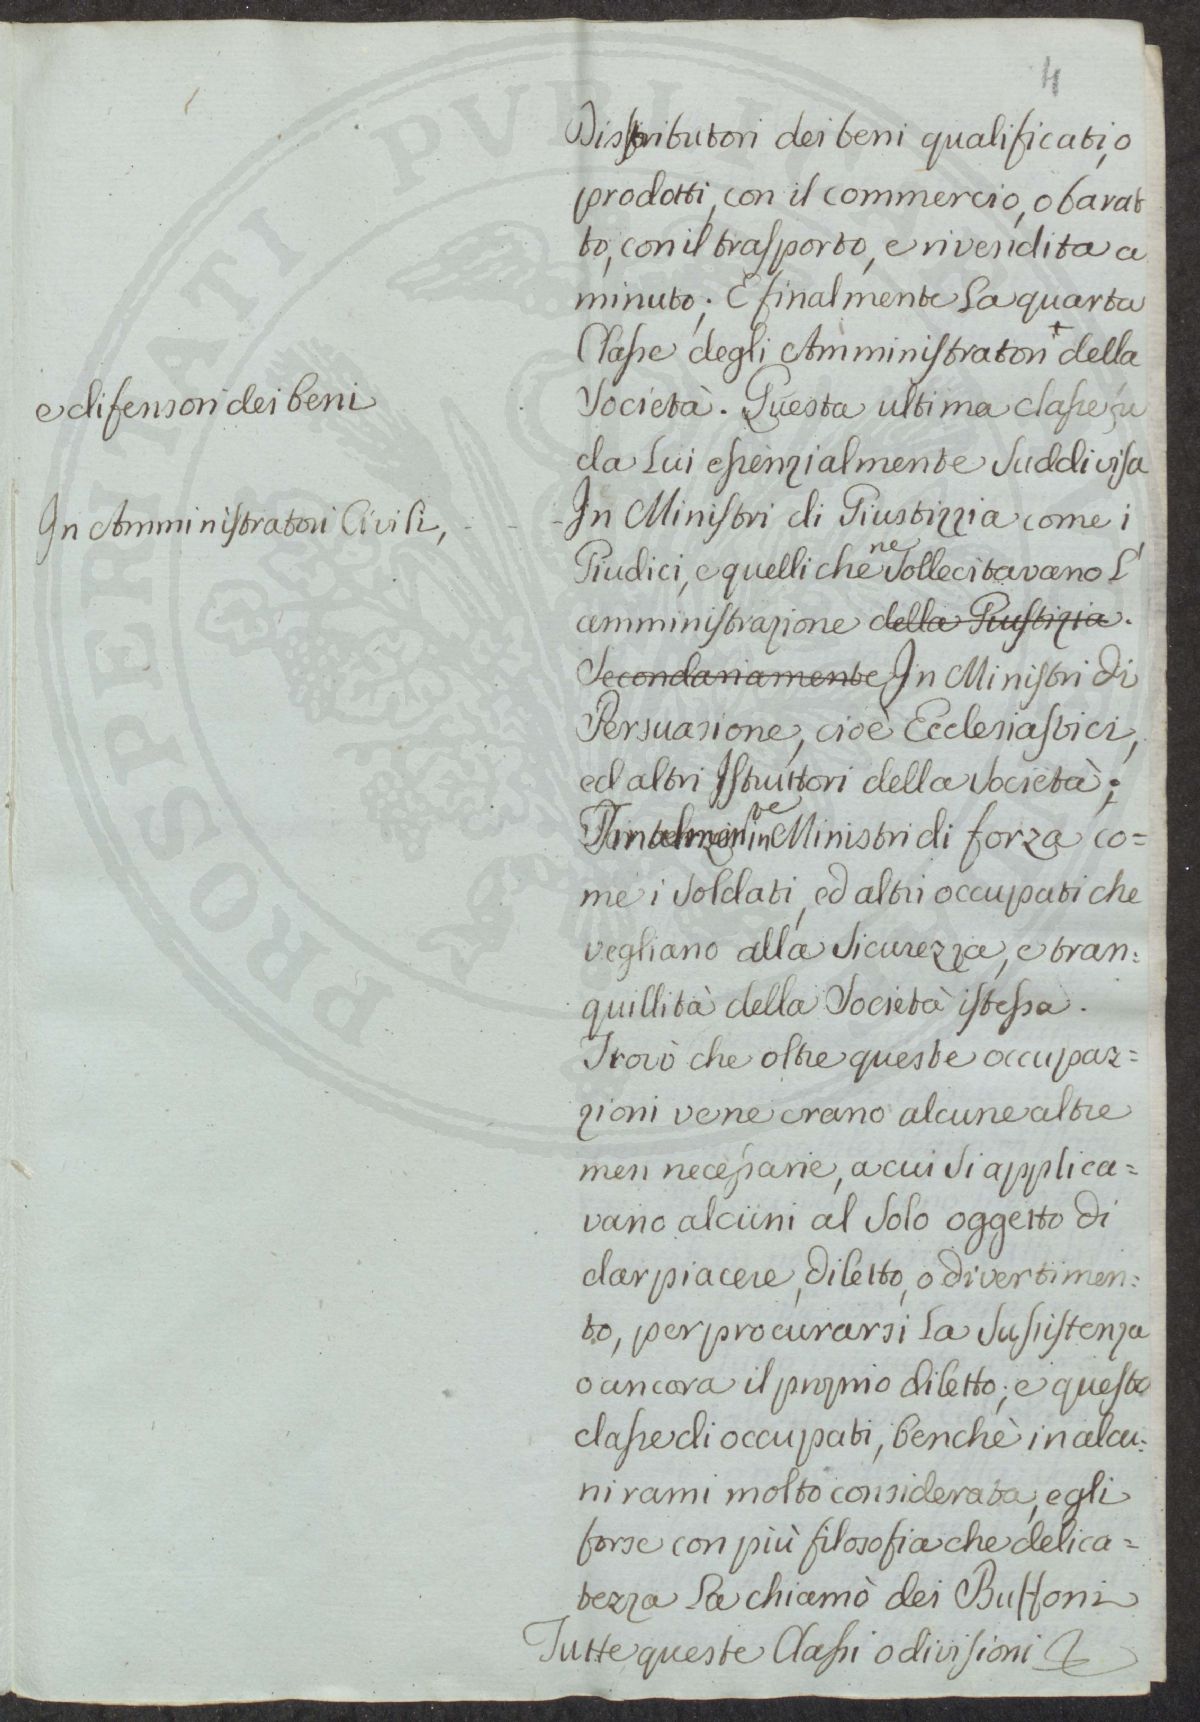 4
Distributori dei beni qualificati, o
prodotti, con il commercio, o barat
to, con il trasporto, e rivendita a
minuto; E finalmente La quarta
Classe degli Amministratori + della
e difensori dei beni
Società. Questa ultima classe fu
da Lui essenzialmente Suddivisa
In Amministratori Civili,
In Ministri di Giustizzia come i
Giudici, e quelli che ne Sollecitavano L'
amministrazione della Giustizia.
Secondariamente In Ministri di
Persuasione, cioè Ecclesiastici,
ed altri Istruttori della Società;
in Ministri di forza co=
me i Soldati, ed altri occupati che
vegliano alla Sicurezza, e tran=
quillità della Società istessa.
Trovò che oltre queste occupaz=
zioni ve ne erano alcune altre
men necessarie, a cui Si applica=
vano alcuni al Solo oggetto di
dar piacere, diletto, o divertimen=
to, per procurarsi La Sussistenza
o ancora il proprio diletto; e questa
classe di occupati, benchè in alcu=
ni rami molto considerata, egli
forse con più filosofia che delica=
tezza La chiamò dei Buffoni
Tutte queste Classi o divisioni
PROSPERITATI PVBLI